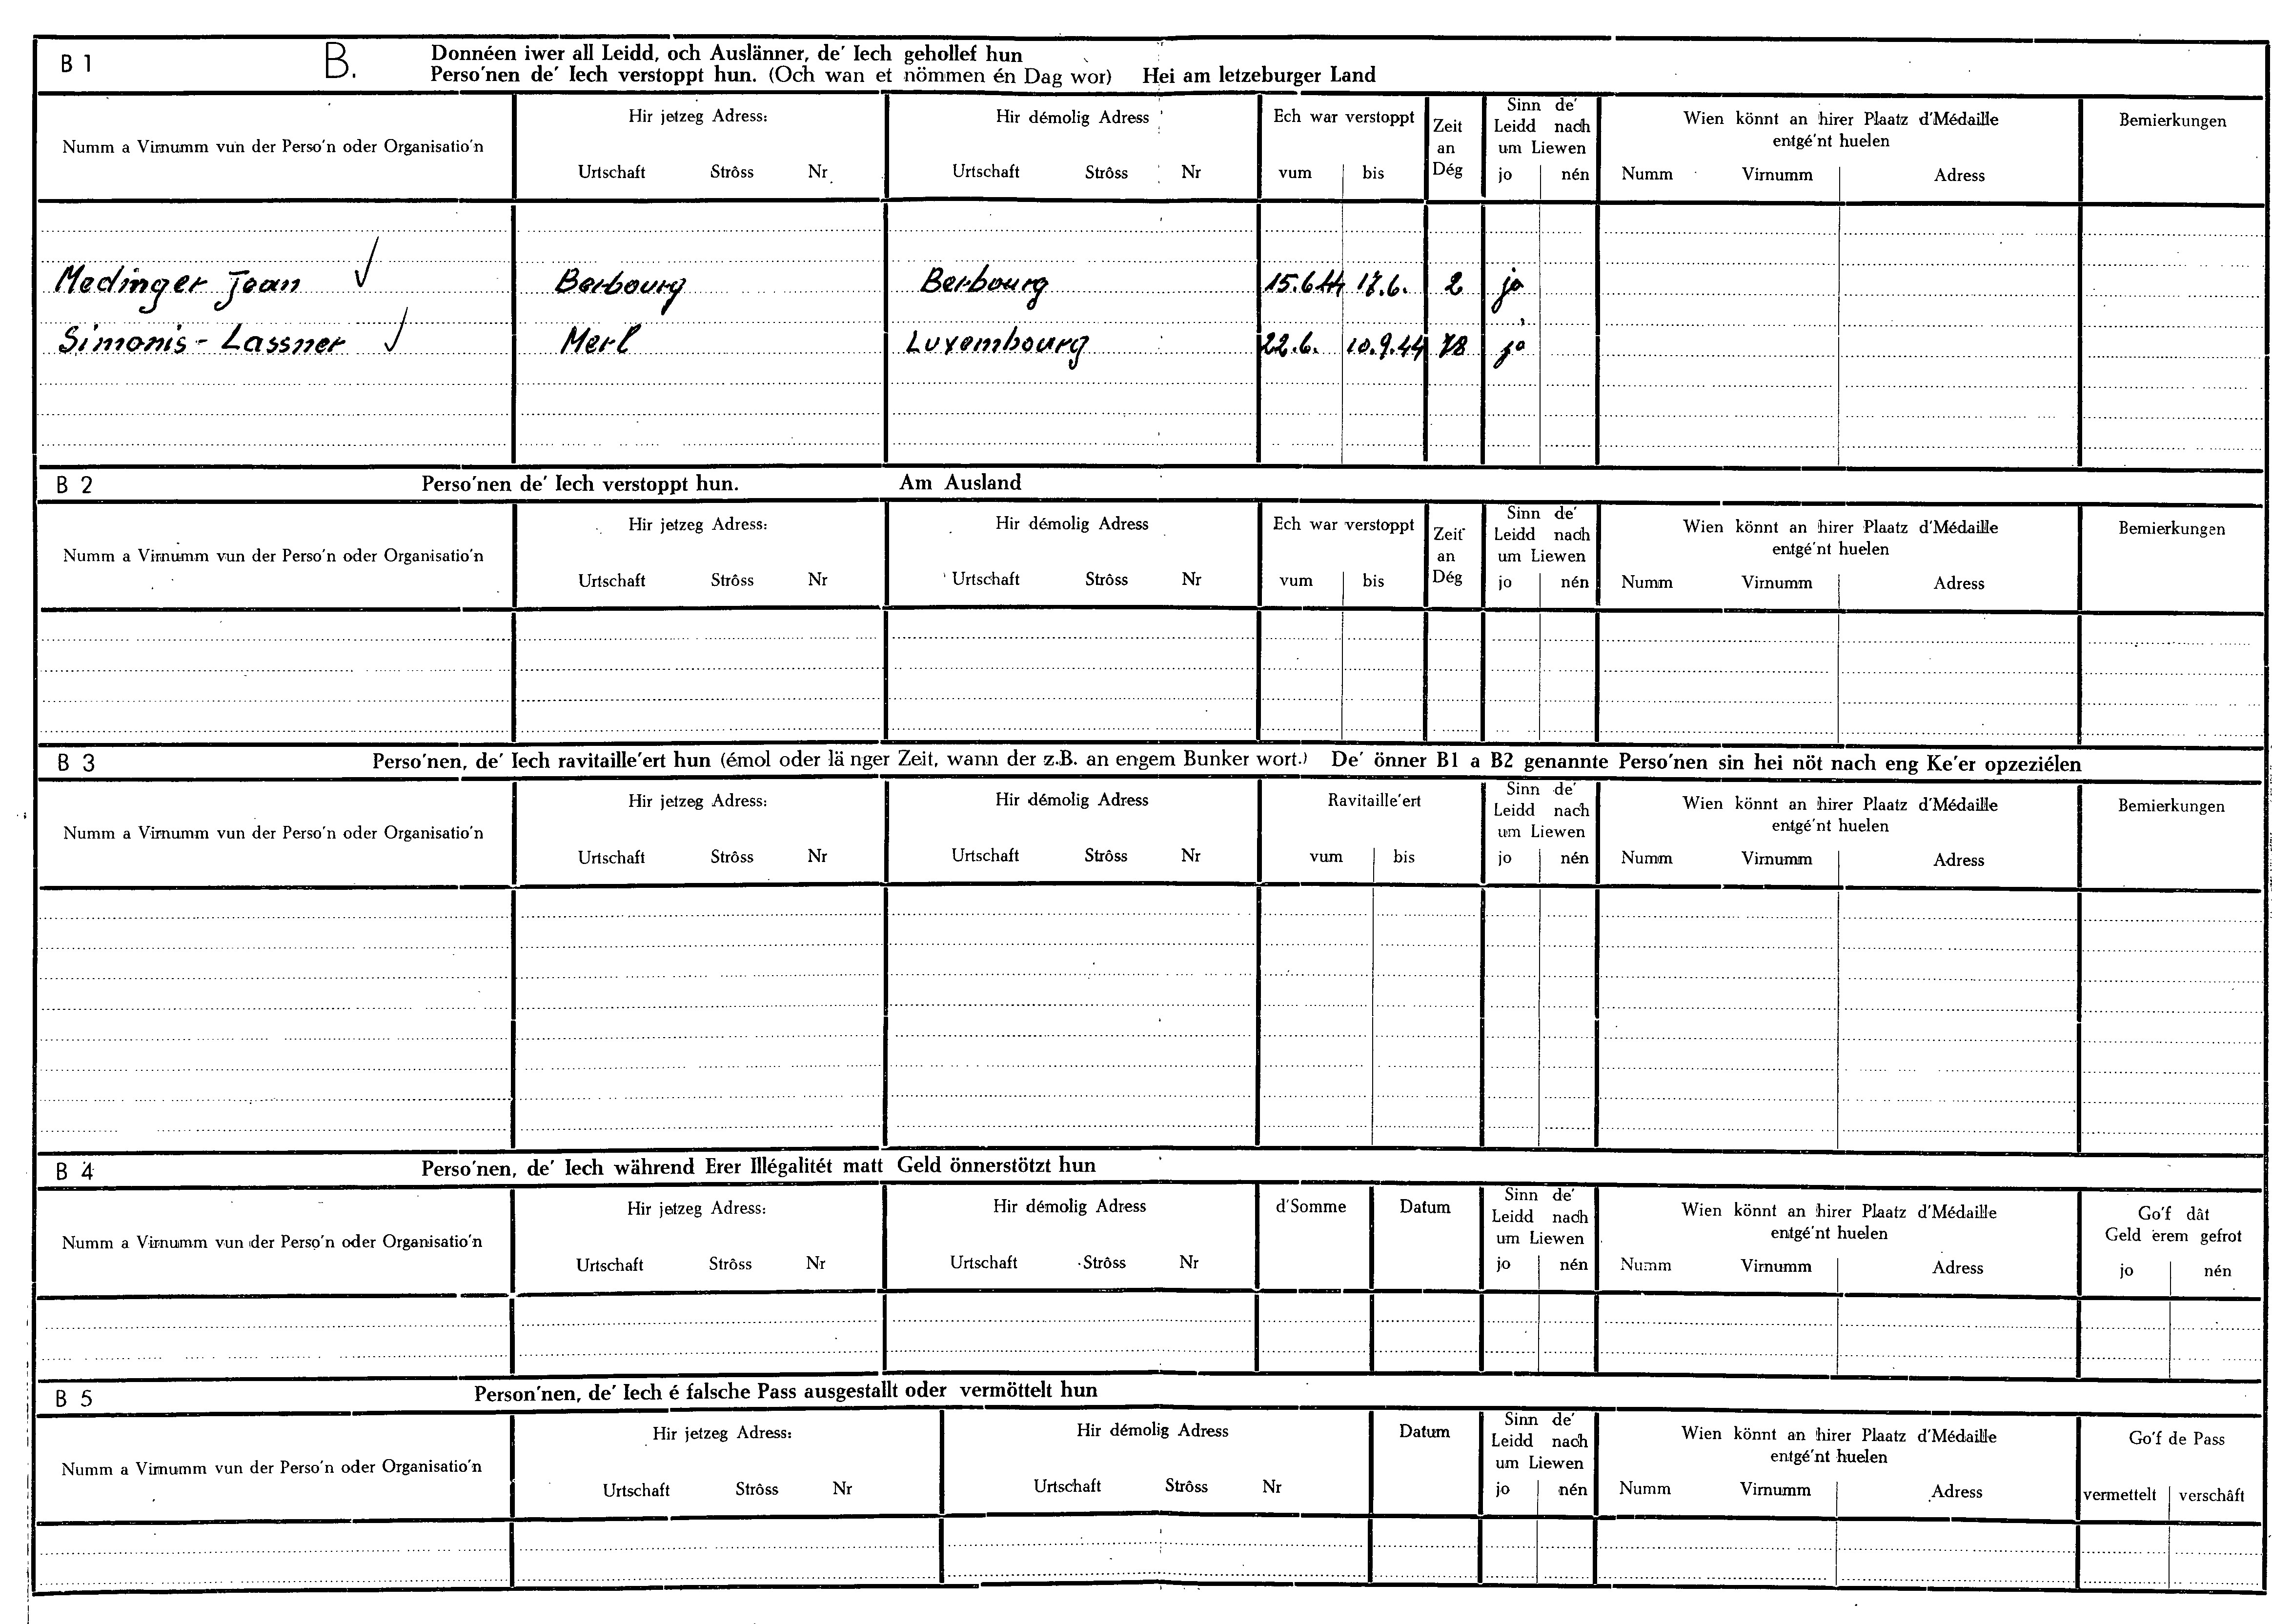 B 1 B. Donnéen iwer all Leidd, och Auslänner, de' Iech gehollef hun
Perso'nen de' Iech verstoppt hun. (Och wan et nömmen én Dag wor) Hei am letzeburger Land
Numm a Virnumm vun der Perso'n oder Organisatio'n
Hir jetzeg Adress:
Urtschaft Strôss Nr
Hir démolig Adress
Urtschaft Strôss Nr
Ech war verstoppt
vum bis
Zeit
an
Dég
Sinn de'
Leidd nach
um Liewen
jo nén
Wien könnt an hirer Plaatz d'Médaille
entgé'nt huelen
Numm Virnumm Adress
Bemierkungen
Medinger Jean ✓ Berbourg Berbourg 15.6.44 17.6. 2 jo
Simonis - Lassner ✓ Merl Luxembourg 22.6. 10.9.44 78 jo
B 2 Perso'nen de' Iech verstoppt hun. Am Ausland
Numm a Virnumm vun der Perso'n oder Organisatio'n
Hir jetzeg Adress:
Urtschaft Strôss Nr
Hir démolig Adress
Urtschaft Strôss Nr
Ech war verstoppt
vum bis
Zeit
an
Dég
Sinn de'
Leidd nach
um Liewen
jo nén
Wien könnt an hirer Plaatz d'Médaille
entgé'nt huelen
Numm Virnumm Adress
Bemierkungen
B 3 Perso'nen, de' Iech ravitaille'ert hun (émol oder länger Zeit, wann der z.B. an engem Bunker wort.) De' önner B1 a B2 genannte Perso'nen sin hei nöt nach eng Ke'er opzeziélen
Numm a Virnumm vun der Perso'n oder Organisatio'n
Hir jetzeg Adress:
Urtschaft Strôss Nr
Hir démolig Adress
Urtschaft Strôss Nr
Ravitaille'ert
vum bis
Sinn de'
Leidd nach
um Liewen
jo nén
Wien könnt an hirer Plaatz d'Médaille
entgé'nt huelen
Numm Virnumm Adress
Bemierkungen
B 4 Perso'nen, de' Iech während Erer Illégalitét matt Geld önnerstötzt hun
Numm a Virnumm vun der Perso'n oder Organisatio'n
Hir jetzeg Adress:
Urtschaft Strôss Nr
Hir démolig Adress
Urtschaft Strôss Nr
d'Somme
Datum
Sinn de'
Leidd nach
um Liewen
jo nén
Wien könnt an hirer Plaatz d'Médaille
entgé'nt huelen
Numm Virnumm Adress
Go'f dât
Geld erem gefrot
jo nén
B 5 Person'nen, de' Iech é falsche Pass ausgestallt oder vermöttelt hun
Numm a Virnumm vun der Perso'n oder Organisatio'n
Hir jetzeg Adress:
Urtschaft Strôss Nr
Hir démolig Adress
Urtschaft Strôss Nr
Datum
Sinn de'
Leidd nach
um Liewen
jo nén
Wien könnt an hirer Plaatz d'Médaille
entgé'nt huelen
Numm Virnumm Adress
Go'f de Pass
vermettelt verschâft